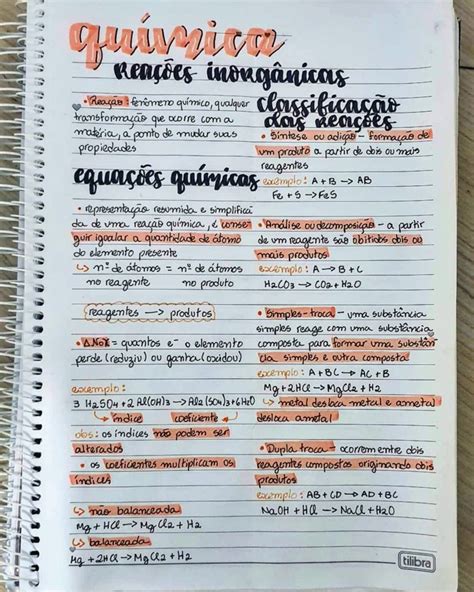 química
reações inorgânicas
• Reação: fenômeno químico, qualquer
transformação que ocorre com a
matéria, a ponto de mudar suas
propiedades
equações químicas
• representação resumida e simplifica
da de uma reação química, é conse
guir igualar a quantidade de átomo
do elemento presente
↳ nº de átomos = nº de átomos
no reagente no produto
reagentes → produtos
• ΔNox = quantos e- o elemento
perde (reduziu) ou ganha (oxidou)
exemplo:
3 H2SO4 + 2 Al(OH)3 → Al2(SO4)3 + 6H2O
↳ índice coeficiente
obs: os índices não podem ser
alterados
• os coeficientes multiplicam os
índices
↳ não balanceada
Mg + HCl → MgCl2 + H2
↳ balanceada
Mg + 2HCl → MgCl2 + H2
classificação
das reações
• Síntese ou adição - formação de
um produto a partir de dois ou mais
reagentes
exemplo: A + B → AB
Fe + S → FeS
• Análise ou decomposição - a partir
de um reagente são obtidos dois ou
mais produtos
exemplo: A → B + C
H2CO3 → CO2 + H2O
• Simples-troca - uma substância
simples reage com uma substância
composta para formar uma substân
cia simples e outra composta
exemplo: A + BC → AC + B
Mg + 2HCl → MgCl2 + H2
↳ metal desloca metal e ametal
desloca ametal
• Dupla troca - ocorrem entre dois
reagentes compostos originando dois
produtos
exemplo: AB + CD → AD + BC
NaOH + HCl → NaCl + H2O
tilibra